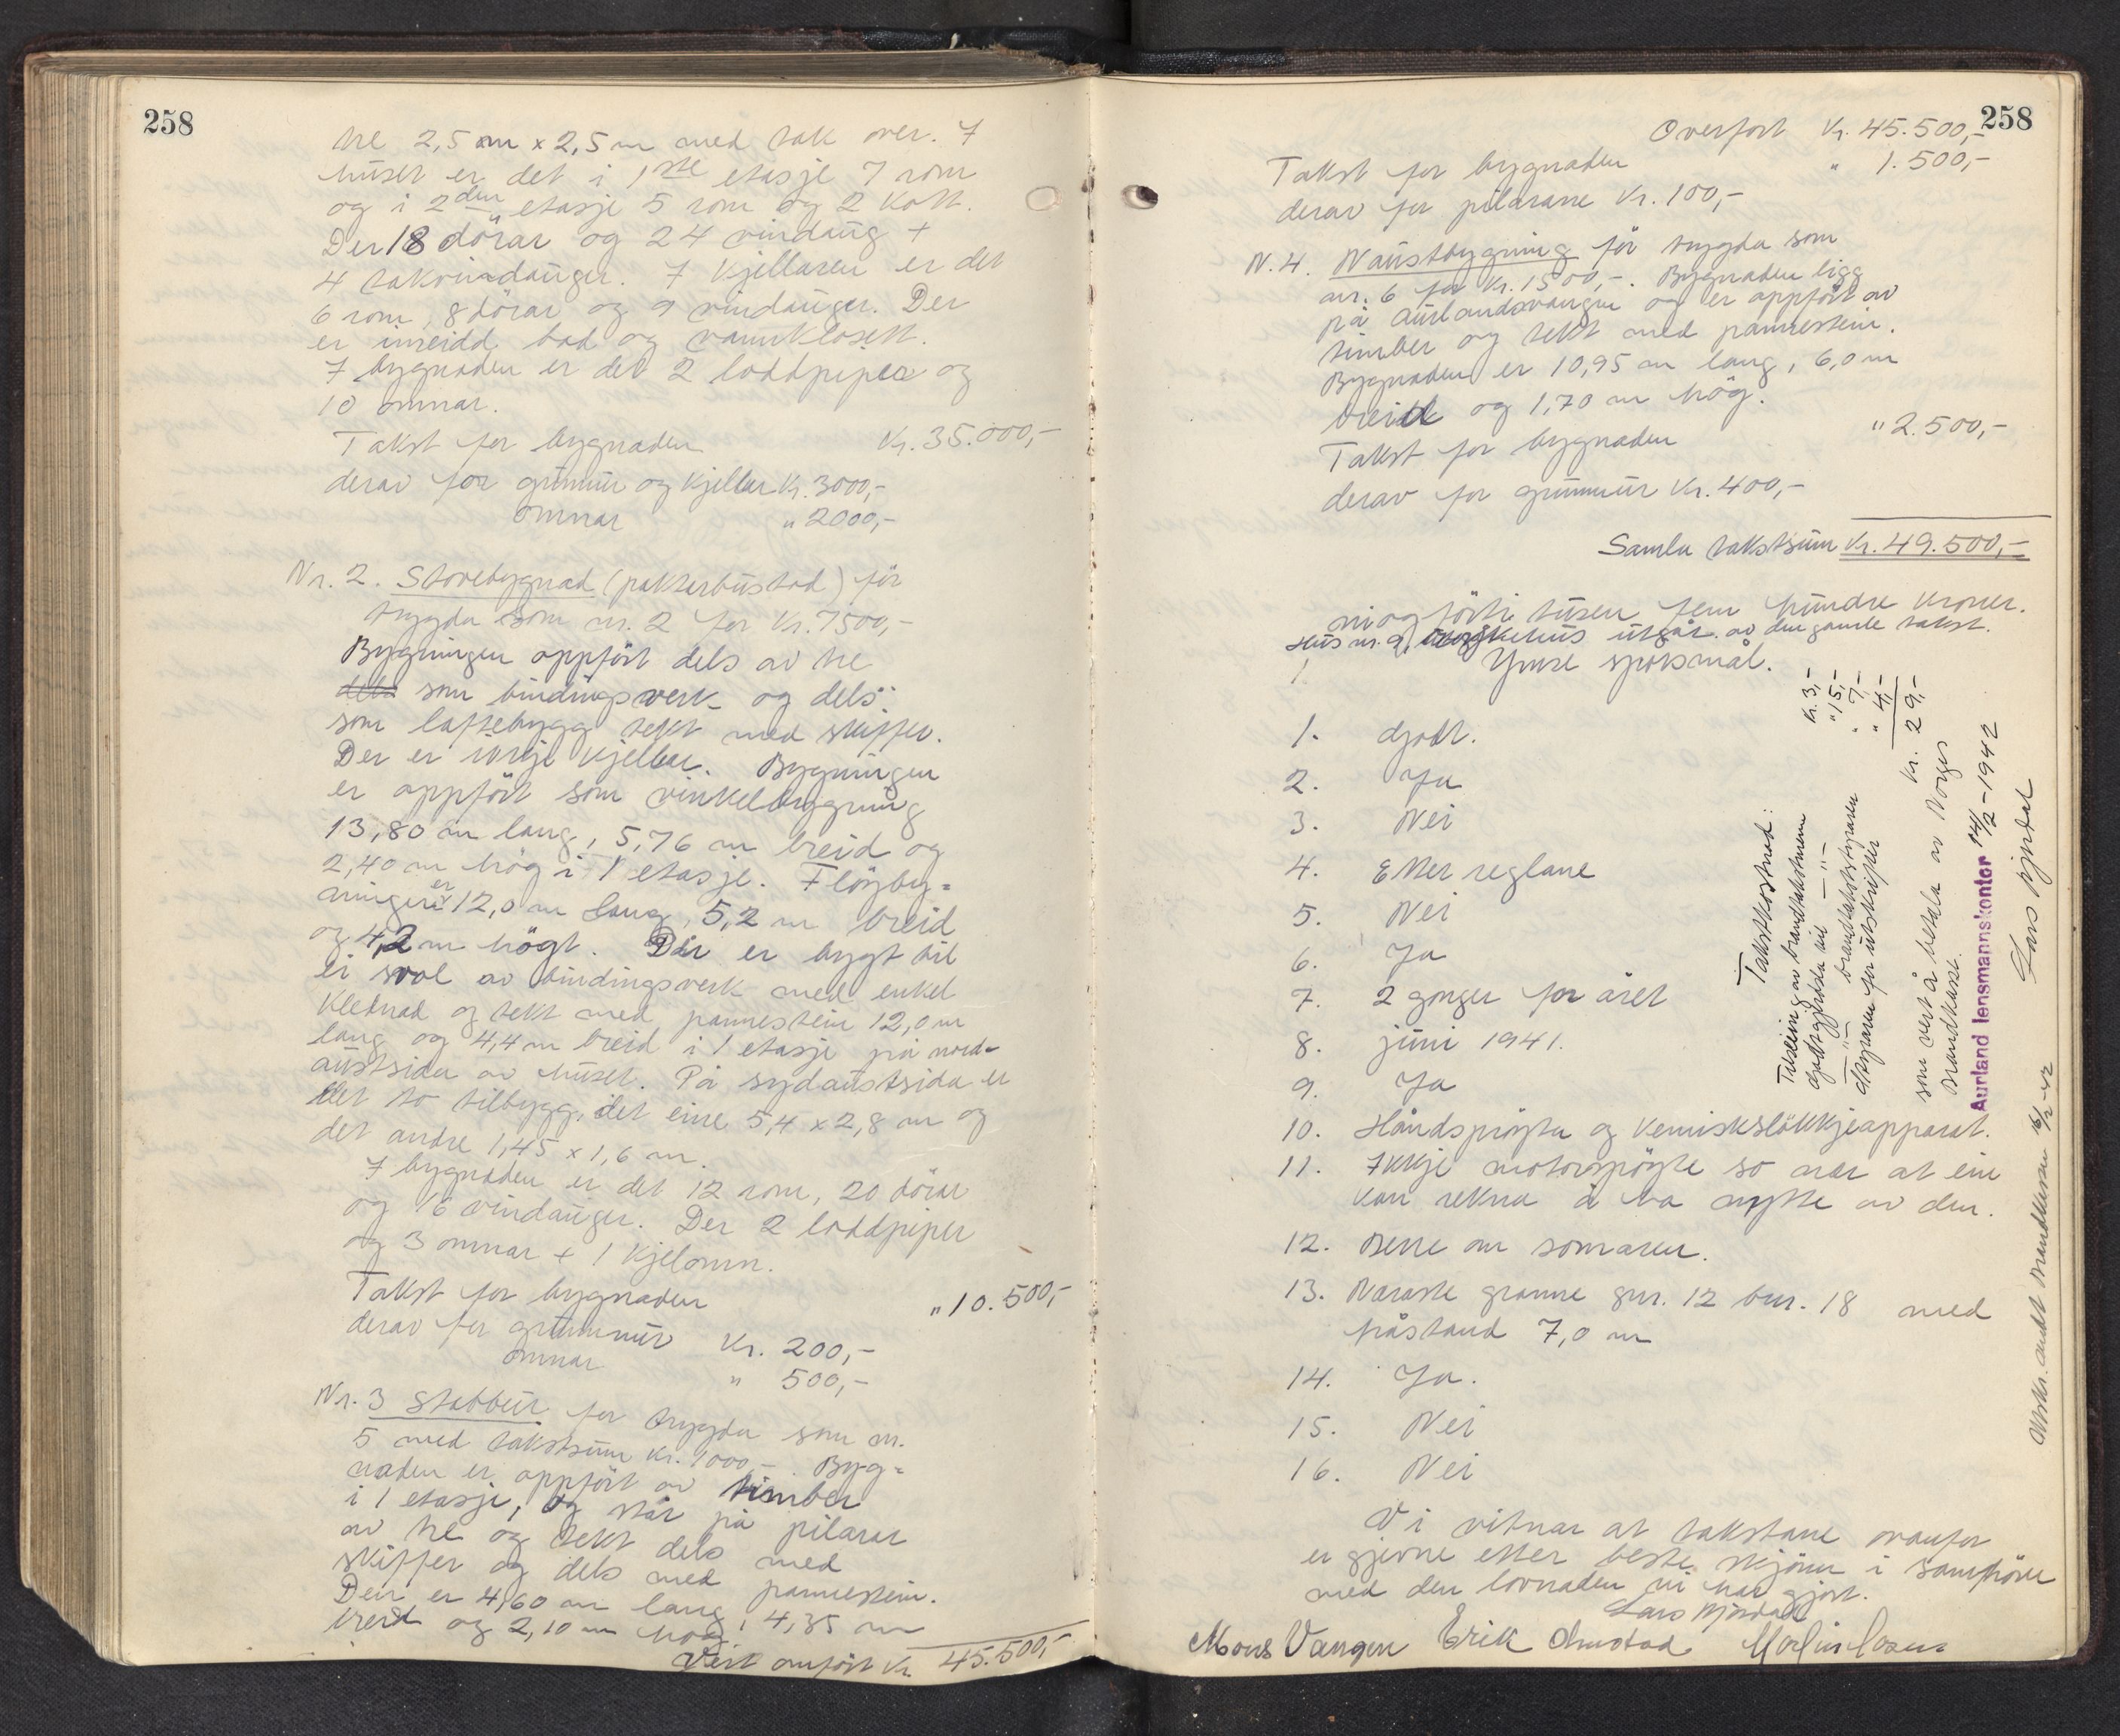 258
tre 2,5 m x 2,5 m med tak over. I
huset er det i 1ste etasje 7 rom
og i 2den etasje 5 rom og 2 Kott.
Der 18 dörar og 24 vindaug +
4 takvindauger. I Kjellaren er det
6 rom, 8 dörar og 9 vindauger. Der
er inreidd bad og vannklosett.
I bygnaden er det 2 loddpiper og
10 omnar.
Takst for bygnaden Kr. 35.000,-
derav for grunnmur og Kjellar Kr. 3000,-
omnar " 2000,-
Nr. 2. Stovebygnad (pakterbustad) för
trygda som nr. 2 for Kr. 7500,-
Bygningen oppfört dels av tre
dels som bindingsverk og dels
som laftebygg tekt med skiffer.
Der er ikkje Kjellar. Bygningen
er oppfört som vinkelbygning
13,80 m lang, 5,76 m breid og
2,40 m hög i 1 etasje. Flöyby=
ningen er 12,0 m lang, 5,2 m breid
og 4,2 m högt. Der er bygt til
ei sval av bindingsverk med enkel
Klednad og tekt med pannestein 12,0 m
lang og 4,4 m breid i 1 etasje på nord-
austsida av huset. På sydaustsida er
det to tilbygg, det eine 5,4 x 2,8 m og
det andre 1,45 x 1,6 m.
I bygnaden er det 12 rom, 20 dörar
og 16 vindauger. Der 2 loddpiper
og 3 omnar + 1 Kjelomn.
Takst for bygnaden " 10.500,-
derav for grunnmur Kr. 200,-
omnar " 500,-
Nr. 3 Stabbur for trygda som nr.
5 med takstsum Kr. 1000,-. Byg=
naden er oppfört av timber
i 1 etasje, og står på pilarar
av tre og tekt dels med
skiffer og dels med pannestein.
Den er 4,60 m lang, 4,35 m
breid og 2,10 m hög.
Vert omfört Kr. 45.500,-
258
Overfört Kr. 45.500,-
Takst for bygnaden " 1.500,-
derav for pilarane Kr. 100,-
N. 4. Naustbygning för trygda som
nr. 6 for Kr. 1500,-. Bygnaden ligg
på Aurlandsvangen og er oppfört av
timber og tekt med pannestein.
Bygnaden er 10,95 m lang, 6,0 m
breid og 1,70 m hög.
Takst for bygnaden " 2.500,-
derav for grunnmur Kr. 400,-
Samla takstsum Kr. 49.500,-
niogförti tusen fem hundre kroner.
Hus nr. 9, utgår av den gamle takst.
Ymse spörsmål.
1. Godt.
2. Ja
3. Nei
4. Etter reglane
5. Nei
6. Ja
7. 2 gonger for året
8. juni 1941.
9. Ja
10. Håndspröyta og kemisksløkkjeapparat.
11. Ikkje motorspröyte so nær at ein
kan rekna å ha nytte av den.
12. Berre om somaren.
13. Næraste granne gnr. 12 bnr. 18 med
fråstand 7,0 m
14. Ja.
15. Nei
16. Nei
Vi vitnar at takstane ovanfor
er gjevne etter beste skjönn i samhöve
med den lovnaden vi har gjort.
Lars Njøsdal
Mons Vangen Erik Onstad
Takstkostnad:
Tilseiing av brandtakstmenn Kr. 3,-
Godtgjersla til — " — " 15,-
— " — brandtakststyraren " 7,-
Skyraren for utskrifter " 4,-
Kr. 29,-
som vert å betala av Norges
Brandkasse.
Aurland lensmannskontor 14/2-1942
Lars Njøsdal
Utskr. sendt Brandkassen 16/2-42